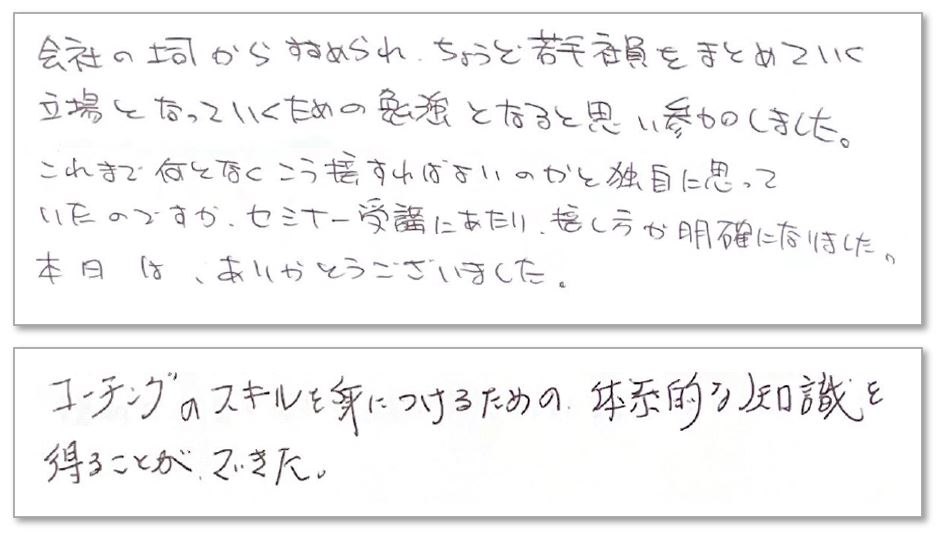 会社の上司からすすめられ、ちょうど若手社員をまとめていく
立場となっていくための勉強となると思い参加しました。
これまで何となくこう接すればよいのかと独自に思って
いたのですが、セミナー受講にあたり、接し方が明確になりました。
本日は、ありがとうございました。
コーチングのスキルを身につけるための、体系的な知識を
得ることが、できた。